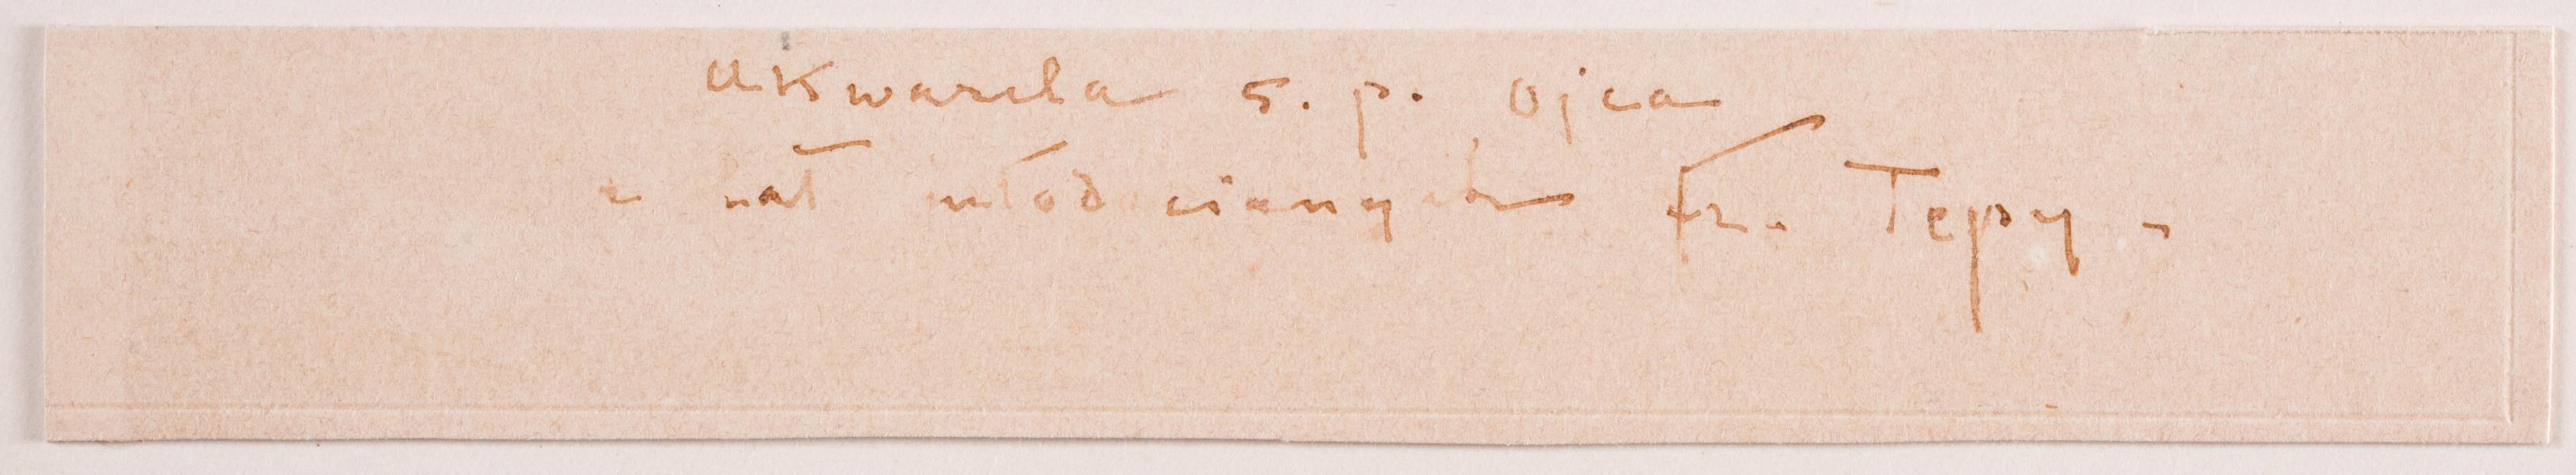 akwarela ś. p. Ojca
z lat młodocianych Fr. Tepy -